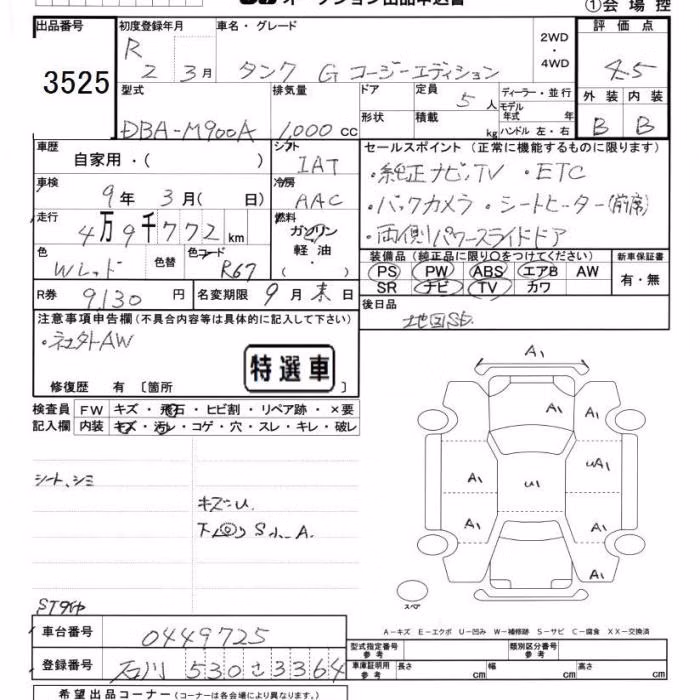 オークション出品申込書
①会場控
出品番号 3525
初度登録年月 R 2 3月
車名・グレード タンク G コージーエディション
2WD・4WD
評価点 4.5
型式 DBA-M900A
排気量 1,000 cc
ドア
形状
定員 5人
積載 kg
ディーラー・並行
モデル年式 年
ハンドル 左・右
外装 B
内装 B
車歴 自家用・( )
シフト IAT
車検 9年 3月( 日)
冷房 AAC
走行 4万9千772km
燃料 ガソリン 軽油・( )
色 Wレッド 色替
色コード R67
R券 9130円
名変期限 9月末日
セールスポイント(正常に機能するものに限ります)
・純正ナビ、TV ・ETC
・バックカメラ ・シートヒーター(前席)
・両側パワースライドドア
装備品(純正品に限り○をつけてください)
PS PW ABS エアB AW
SR ナビ TV カワ
新車保証書 有・無
後日品 地図SD
注意事項申告欄(不具合内容等は具体的に記入して下さい)
・社外AW
特選車
修復歴 有 [箇所 ]
検査員記入欄
FW キズ・飛石・ヒビ割・リペア跡・×要
内装 キズ・汚レ・コゲ・穴・スレ・キレ・破レ
シート、シミ
キズ=U.
下回り S小.A.
STタイヤ
A1
A1
A1
A1
uA1
U1
A1
A1
A1
スペア
A-キズ E-エクボ U-凹み W-補修跡 S-サビ C-腐食 XX-交換済
車台番号 0449725
登録番号 石川 530 さ 3364
型式指定番号 参考
類別区分番号 参考
車庫証明用 参考 長さ cm 幅 cm 高さ cm
希望出品コーナー(コーナーは各会場により異なります。)